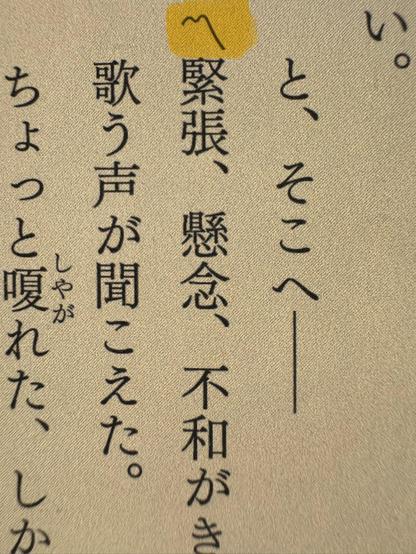 い。
と、そこへ――
〽緊張、懸念、不和がき
歌う声が聞こえた。
ちょっと嗄れた、しか
しやが